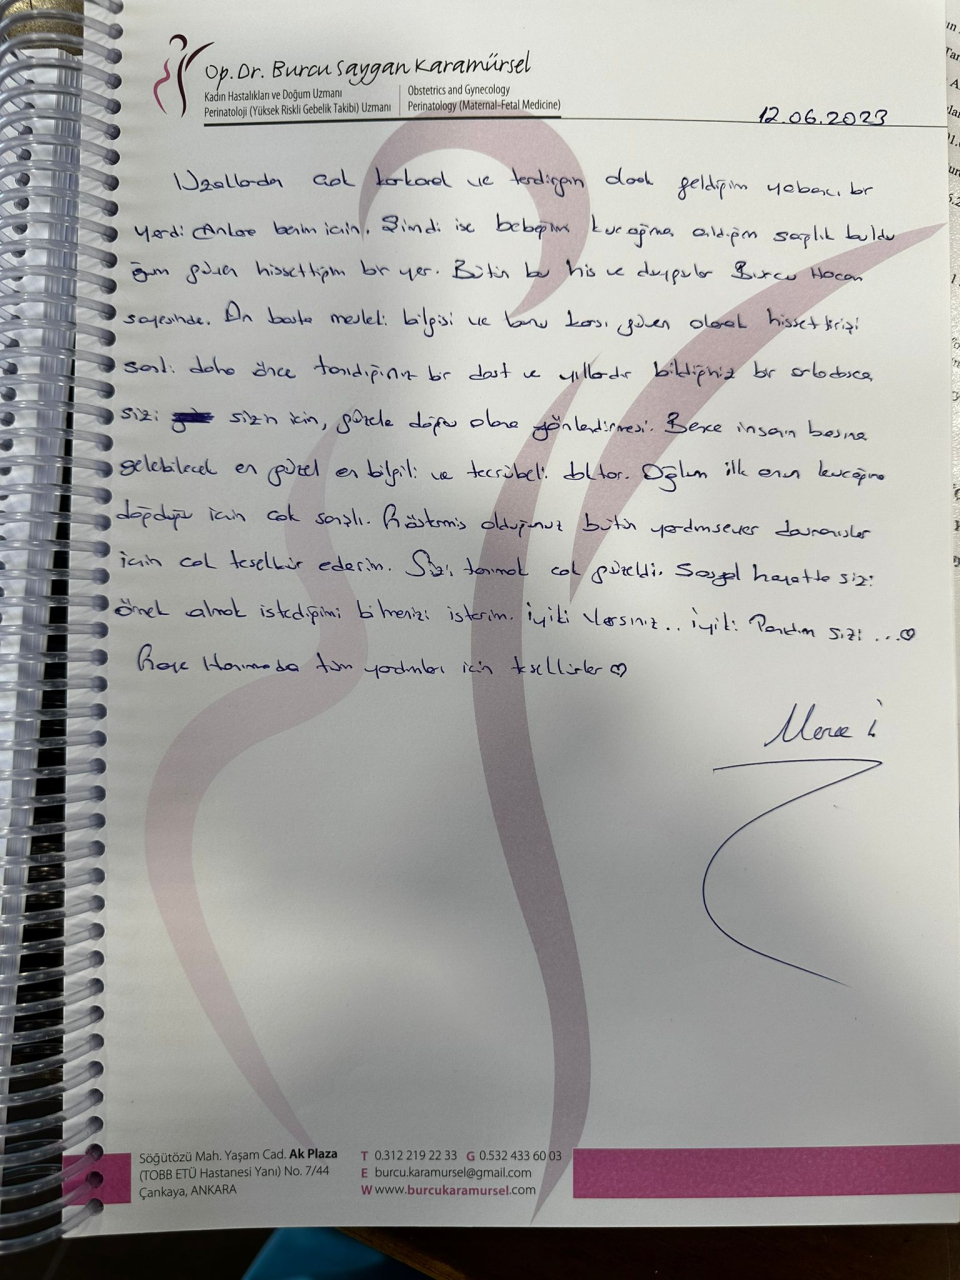 Op. Dr. Burcu Saygan Karamürsel
Kadın Hastalıkları ve Doğum Uzmanı
Perinatoloji (Yüksek Riskli Gebelik Takibi) Uzmanı
Obstetrics and Gynecology
Perinatology (Maternal-Fetal Medicine)
12.06.2023
çok korkarak ve tedirgin olarak geldiğim yabancı bir
yerdi benim için. Şimdi ise bebeğimi kucağıma aldığım sağlık buldu
ğum güven hissettiğim bir yer. Bütün bu his ve duygular Burcu Hocam
sayesinde. En başta mesleki bilgisi ve buna karşı güven olarak
daha önce tanıdığınız bir dost ve yıllardır bildiğiniz bir
sizi sizin için, güzele doğru olana yönlendirmesi. Bence insanın başına
gelebilecek en güzel en bilgili ve tecrübeli doktor. Oğlum ilk onun kucağına
doğduğu için çok şanslı. Göstermiş olduğunuz bütün yardımsever davranışlar
için çok teşekkür ederim. Sizi tanımak çok güzeldi. Sosyal hayatta sizi
örnek almak istediğimi bilmenizi isterim. İyiki Varsınız.. iyiki Tanıdım sizi ...♡
Hanımada tüm yardımları için teşekkürler ♡
Merve İ
Söğütözü Mah. Yaşam Cad. Ak Plaza
(TOBB ETÜ Hastanesi Yanı) No. 7/44
Çankaya, ANKARA
T 0.312 219 22 33 G 0.532 433 60 03
E burcu.karamursel@gmail.com
W www.burcukaramursel.com